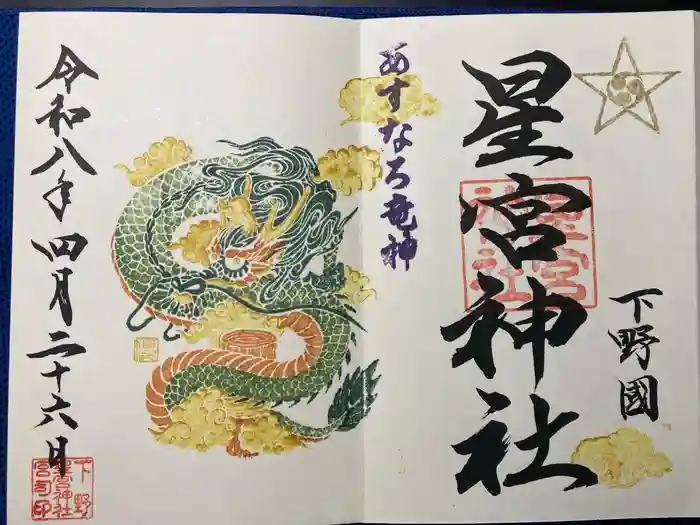 下野國
星宮神社
あすなろ竜神
令和八年四月二十六日
下野
星宮神社
宮司印